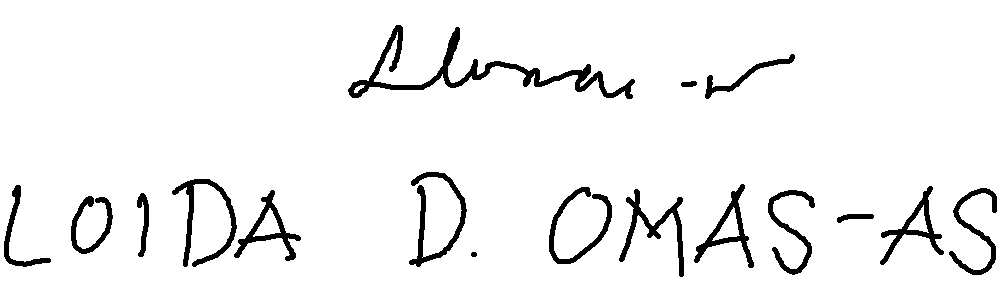 LOIDA D. OMAS-AS